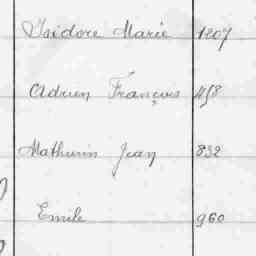 Isidore Marie 1207
Adrien François 458
Mathurin Jean 832
Emile 960